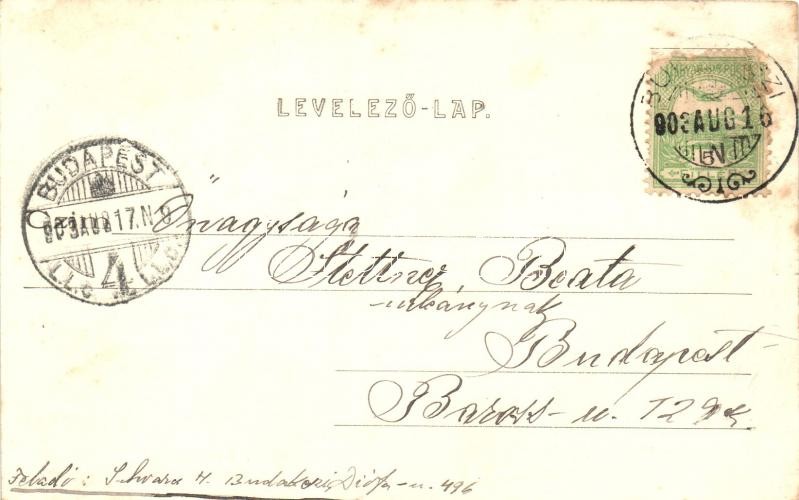 LEVELEZŐ-LAP.
903 AUG 16
BUDAPEST
903 AUG 17. N 8
4
Őnagysága
Beata
Budapest
Baross-u. 12
Feladó: Schwarz H. Budakeszi, Diófa-u. 496